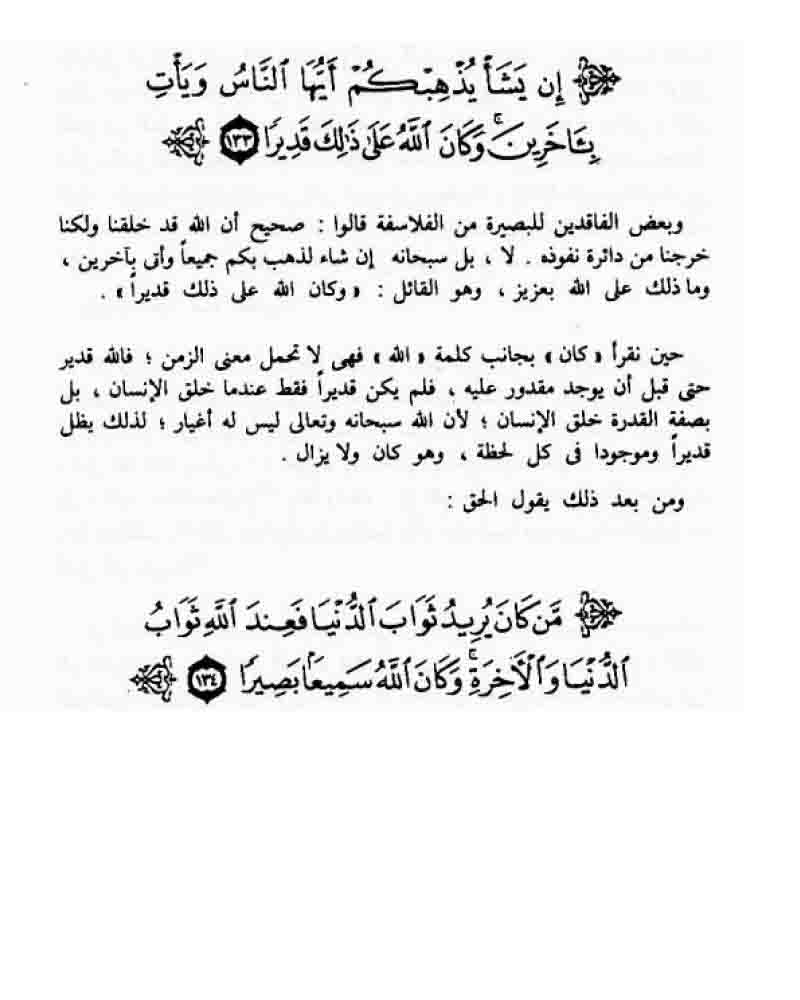 إِن يَشَأْ يُذْهِبْكُمْ أَيُّهَا ٱلنَّاسُ وَيَأْتِ
بِـَٔاخَرِينَ ۚ وَكَانَ ٱللَّهُ عَلَىٰ ذَٰلِكَ قَدِيرًا ١٣٣
وبعض الفاقدين للبصيرة من الفلاسفة قالوا : صحيح أن الله قد خلقنا ولكنا
خرجنا من دائرة نفوذه . لا ، بل سبحانه إن شاء لذهب بكم جميعاً وأتى بآخرين ،
وما ذلك على الله بعزيز ، وهو القائل : « وكان الله على ذلك قديراً » .
حين نقرأ « كان » بجانب كلمة « الله » فهى لا تحمل معنى الزمن ؛ فالله قدير
حتى قبل أن يوجد مقدور عليه ، فلم يكن قديراً فقط عندما خلق الإنسان ، بل
بصفة القدرة خلق الإنسان ؛ لأن الله سبحانه وتعالى ليس له أغيار ؛ لذلك يظل
قديراً وموجودا فى كل لحظة ، وهو كان ولا يزال .
ومن بعد ذلك يقول الحق :
مَّن كَانَ يُرِيدُ ثَوَابَ ٱلدُّنْيَا فَعِندَ ٱللَّهِ ثَوَابُ
ٱلدُّنْيَا وَٱلْـَٔاخِرَةِ ۚ وَكَانَ ٱللَّهُ سَمِيعًۢا بَصِيرًا ١٣٤